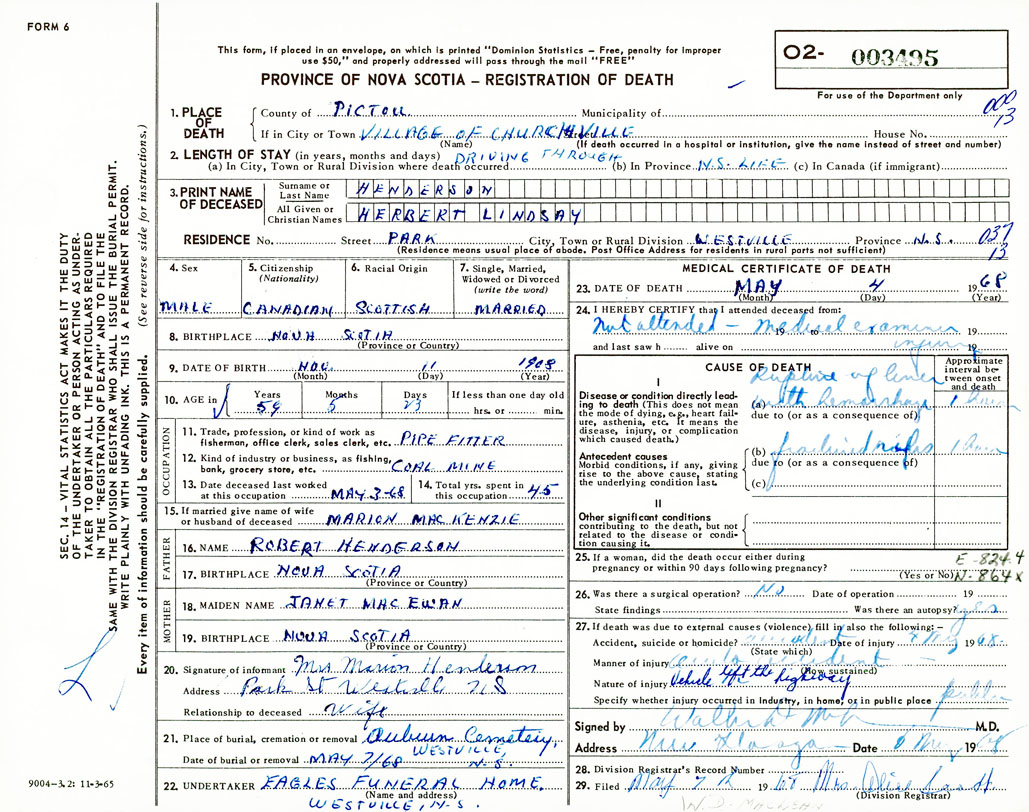 FORM 6
This form, if placed in an envelope, on which is printed "Dominion Statistics – Free, penalty for improper
use $50," and properly addressed will pass through the mail "FREE"
PROVINCE OF NOVA SCOTIA – REGISTRATION OF DEATH
O2- 003495
For use of the Department only
000
13
1. PLACE OF DEATH
County of PICTOU Municipality of
If in City or Town VILLAGE OF CHURCHVILLE House No.
(Name) (If death occurred in a hospital or institution, give the name instead of street and number)
2. LENGTH OF STAY (in years, months and days) DRIVING THROUGH
(a) In City, Town or Rural Division where death occurred (b) In Province N.S. LIFE (c) In Canada (if immigrant)
3. PRINT NAME OF DECEASED
Surname or Last Name HENDERSON
All Given or Christian Names HERBERT LINDSAY
RESIDENCE No. Street PARK City, Town or Rural Division WESTVILLE Province N.S. 037
13
(Residence means usual place of abode. Post Office Address for residents in rural parts not sufficient)
4. Sex
MALE
5. Citizenship
(Nationality)
CANADIAN
6. Racial Origin
SCOTTISH
7. Single, Married,
Widowed or Divorced
(write the word)
MARRIED
8. BIRTHPLACE NOVA SCOTIA
(Province or Country)
9. DATE OF BIRTH NOV. 11 1908
(Month) (Day) (Year)
10. AGE in Years Months Days If less than one day old
59 5 23 hrs. or min.
OCCUPATION
11. Trade, profession, or kind of work as
fisherman, office clerk, sales clerk, etc. PIPE FITTER
12. Kind of industry or business, as fishing,
bank, grocery store, etc. COAL MINE
13. Date deceased last worked
at this occupation MAY 3-68
14. Total yrs. spent in
this occupation 45
15. If married give name of wife
or husband of deceased MARION MAC KENZIE
FATHER
16. NAME ROBERT HENDERSON
17. BIRTHPLACE NOVA SCOTIA
(Province or Country)
MOTHER
18. MAIDEN NAME JANET MAC EWAN
19. BIRTHPLACE NOVA SCOTIA
(Province or Country)
20. Signature of informant Mrs Marion Henderson
Address Park St Westville N S
Relationship to deceased Wife
21. Place of burial, cremation or removal Auburn Cemetery,
WESTVILLE,
Date of burial or removal MAY 7/68 N.S.
22. UNDERTAKER EAGLES FUNERAL HOME,
(Name and address)
WESTVILLE, N.S.
MEDICAL CERTIFICATE OF DEATH
23. DATE OF DEATH MAY 4 1968
(Month) (Day) (Year)
24. I HEREBY CERTIFY that I attended deceased from:
Not attended – Medical examiner 19 to 19
and last saw h alive on injury 19
CAUSE OF DEATH
Approximate
interval be-
tween onset
and death
I
Rupture of liver
Disease or condition directly lead-
ing to death (This does not mean
the mode of dying, e.g., heart fail-
ure, asthenia, etc. It means the
disease, injury, or complication
which caused death.)
(a) with hemorrhage 1 hour
due to (or as a consequence of)
Antecedent causes
Morbid conditions, if any, giving
rise to the above cause, stating
the underlying condition last.
(b) fractured ribs 1 hour
due to (or as a consequence of)
(c)
II
Other significant conditions
contributing to the death, but not
related to the disease or condi-
tion causing it.
25. If a woman, did the death occur either during
pregnancy or within 90 days following pregnancy?
(Yes or No)
E-824.4
N-864x
26. Was there a surgical operation? NO Date of operation 19
State findings Was there an autopsy? yes
27. If death was due to external causes (violence) fill in also the following: –
Accident, suicide or homicide? accident Date of injury 4 May 1968
(State which)
Manner of injury auto accident –
(How sustained)
Nature of injury Vehicle left the highway
Specify whether injury occurred in industry, in home, or in public place public
Signed by M.D.
Address New Glasgow Date May 1968
28. Division Registrar's Record Number
29. Filed May 7 1968 Mrs. Alice
(Division Registrar)
SEC. 14 – VITAL STATISTICS ACT MAKES IT THE DUTY
OF THE UNDERTAKER OR PERSON ACTING AS UNDER-
TAKER TO OBTAIN ALL THE PARTICULARS REQUIRED
IN THE "REGISTRATION OF DEATH" AND TO FILE THE
SAME WITH THE DIVISION REGISTRAR WHO SHALL ISSUE THE BURIAL PERMIT.
WRITE PLAINLY WITH UNFADING INK. THIS IS A PERMANENT RECORD.
Every item of information should be carefully supplied. (See reverse side for instructions.)
9004-3.2: 11-3-65